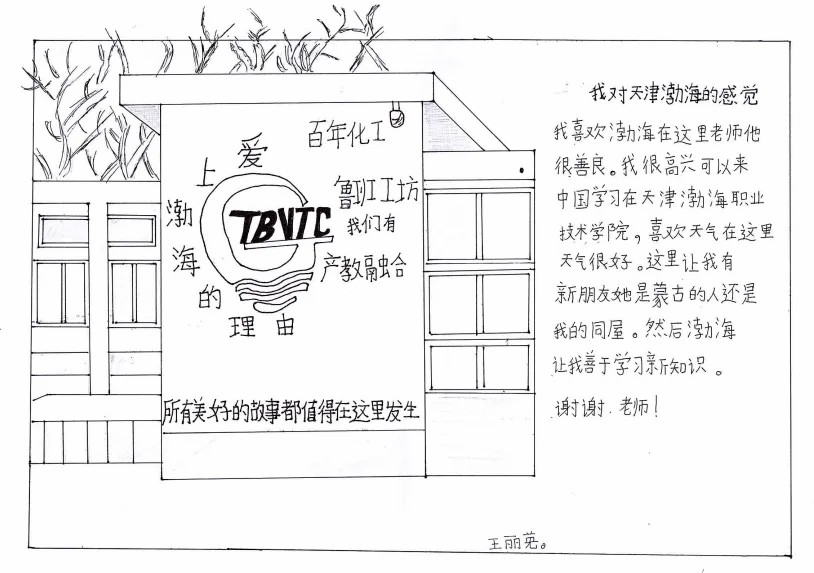 百年化工
爱上渤海的理由
TBVTC
鲁班工坊
我们有
产教融合
所有美好的故事都值得在这里发生
我对天津渤海的感觉
我喜欢渤海在这里老师他
很善良。我很高兴可以来
中国学习在天津渤海职业
技术学院，喜欢天气在这里
天气很好。这里让我有
新朋友她是蒙古的人还是
我的同屋。然后渤海
让我善于学习新知识。
谢谢.老师！
王丽英。